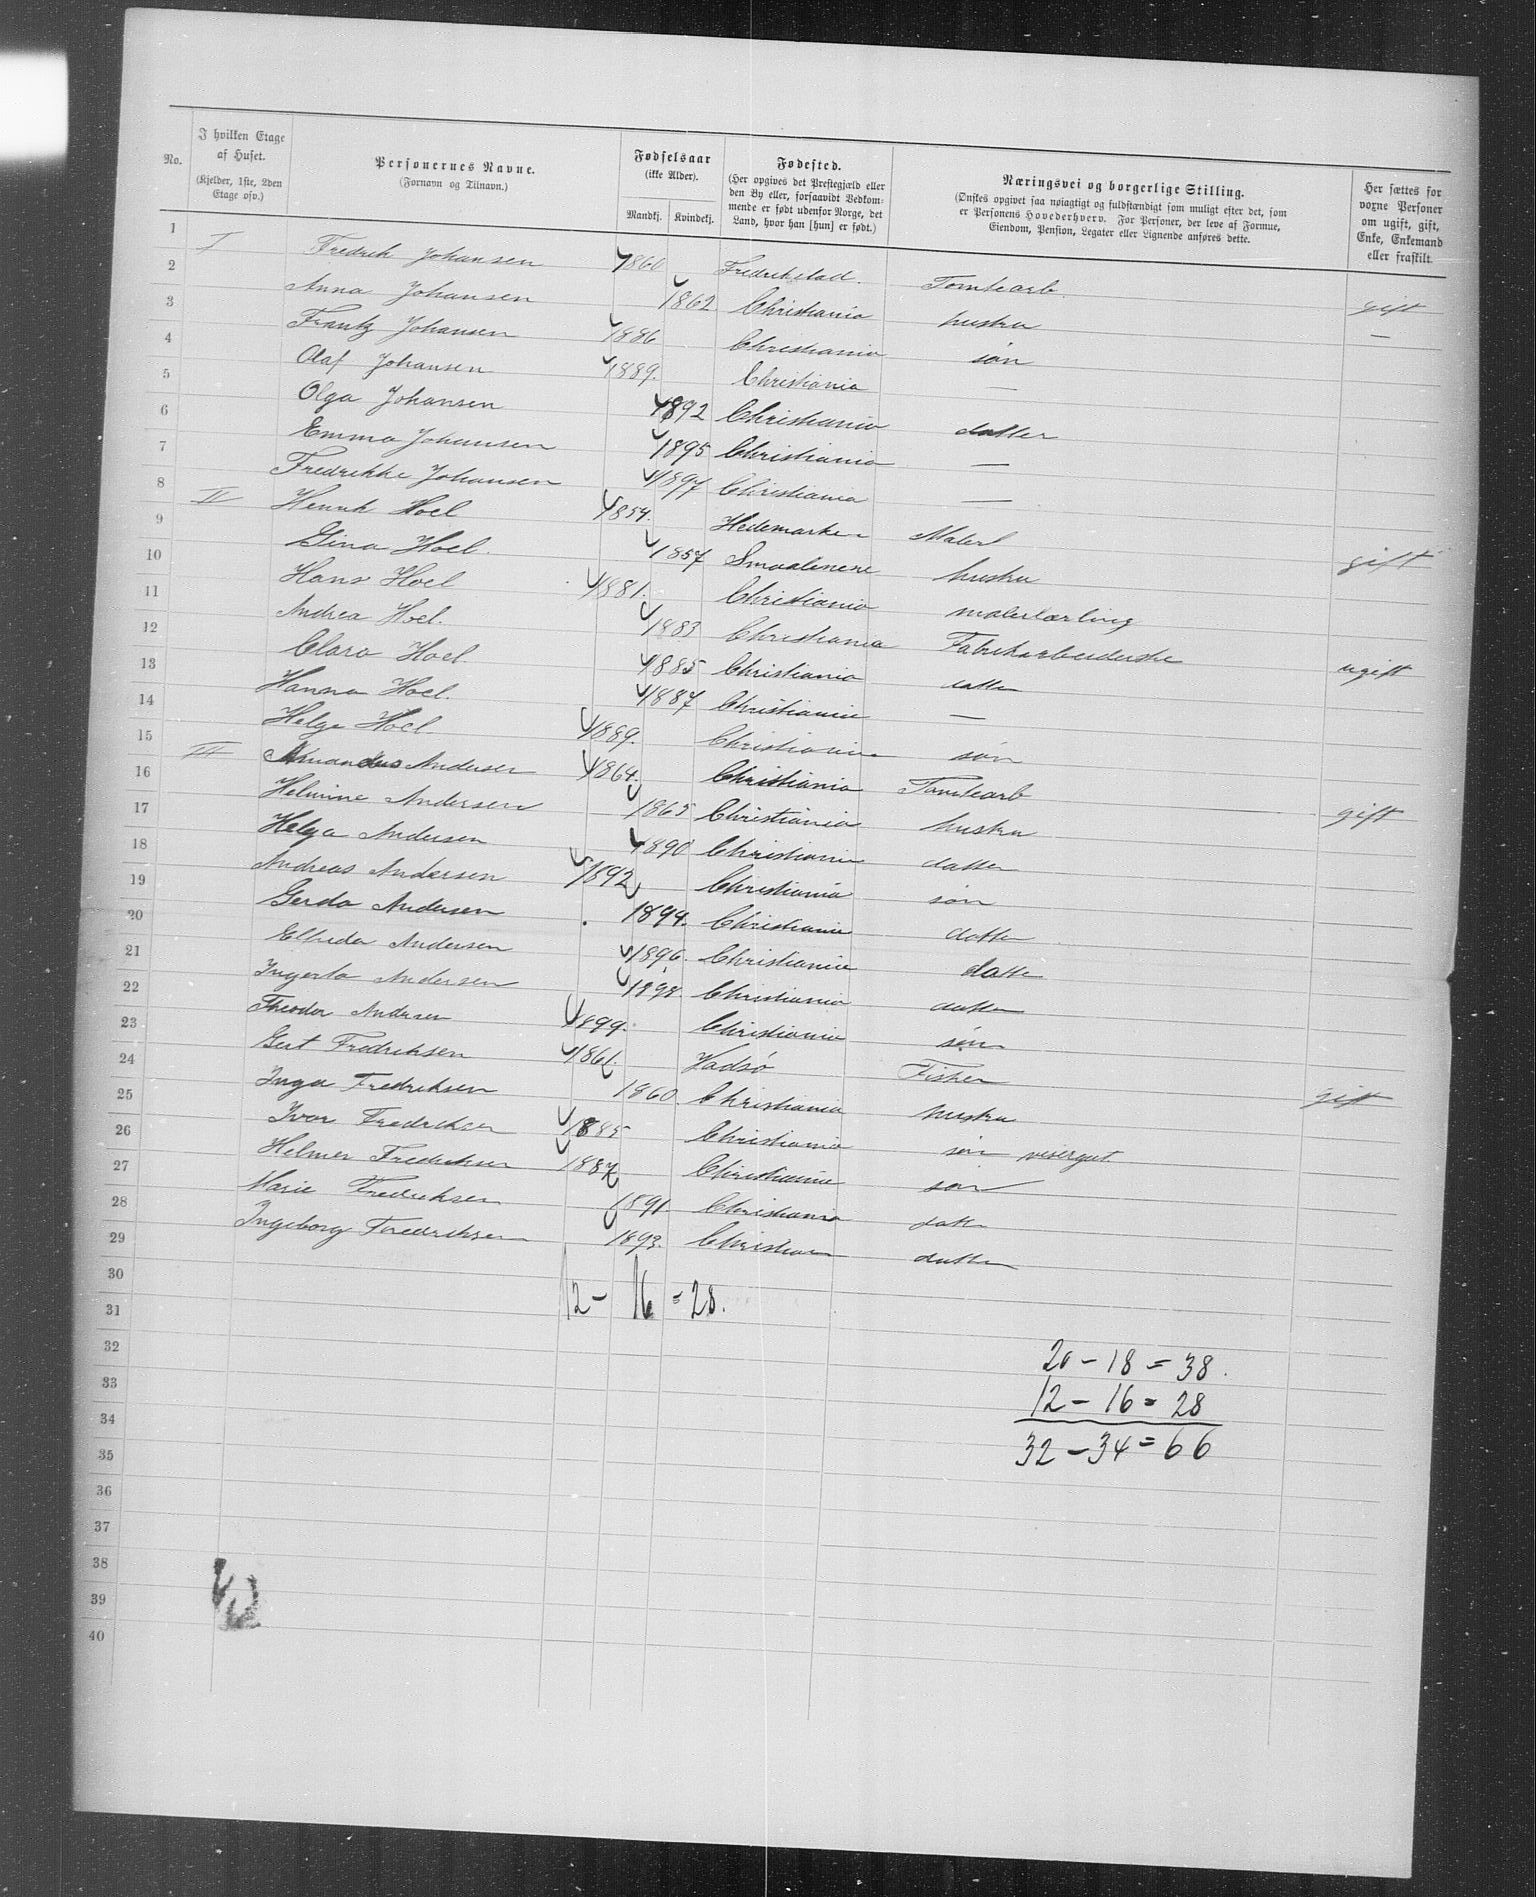 No.
I hvilken Etage af Huset.
(Kjelder, 1ste, 2den Etage osv.)
Personernes Navne.
(Fornavn og Tilnavn.)
Fødselsaar
(ikke Alder).
Mandkj. Kvindekj.
Fødested.
(Her opgives det Prestegjæld eller den By eller, forsaavidt Vedkommende er født udenfor Norge, det Land, hvor han [hun] er født.)
Næringsvei og borgerlige Stilling.
(Ønskes opgivet saa nøiagtigt og fuldstændigt som muligt efter det, som er Personens Hovederhverv. For Personer, der leve af Formue, Eiendom, Pension, Legater eller Lignende anføres dette.
Her sættes for voxne Personer om ugift, gift, Enke, Enkemand eller fraskilt.
1 I Fredrik Johansen 1860 Fredrikstad. Tomtearb. gift
2 Anna Johansen 1862 Christiania hustru —
3 Frantz Johansen 1886 Christiania søn
4 Olaf Johansen 1889. Christiania —
5 Olga Johansen 1892 Christiania datter
6 Emma Johansen 1895 Christiania —
7 Fredrikke Johansen 1897 Christiania —
8 II Henrik Hoel 1854. Hedemarken Maler gift
9 Gina Hoel. 1857 Smaalenene hustru
10 Hans Hoel 1881. Christiania malerlærling
11 Andrea Hoel. 1883 Christiania Fabrikarbeiderske ugift
12 Clara Hoel. 1885 Christiania datter
13 Hanna Hoel. 1887 Christiania —
14 Helge Hoel 1889. Christiania søn
15 III Amandus Andersen 1864. Christiania Tomtearb gift
16 Helmine Andersen 1865 Christiania hustru
17 Helga Andersen 1890 Christiania datter
18 Andreas Andersen 1892 Christiania søn
19 Gerda Andersen 1894. Christiania datter
20 Elfrida Andersen 1896. Christiania datter
21 Ingerta Andersen 1898. Christiania datter
22 Theodor Andersen 1899. Christiania søn
23 Gert Fredriksen 1861. Vadsø Fisker gift
24 Inga Fredriksen 1860. Christiania hustru
25 Ivar Fredriksen 1885 Christiania søn visergut
26 Helmer Fredriksen 1887 Christiania søn
27 Marie Fredriksen 1891 Christiania datter
28 Ingeborg Fredriksen 1893. Christiania datter
29
30 12 - 16 = 28.
31
32 20 - 18 = 38.
33 12 - 16 = 28
34 32 - 34 = 66
35
36
37
38
39
40